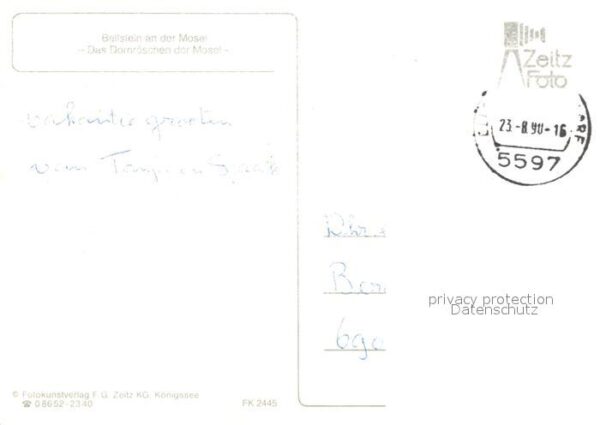 Beilstein an der Mosel
- Das Dornröschen der Mosel -
Zeitz
Foto
23.-8.90-16
5597
vakantie groeten
van
privacy protection
Datenschutz
© Fotokunstverlag F. G. Zeitz KG, Königssee
☎ 0 86 52 - 23 40
FK 2445